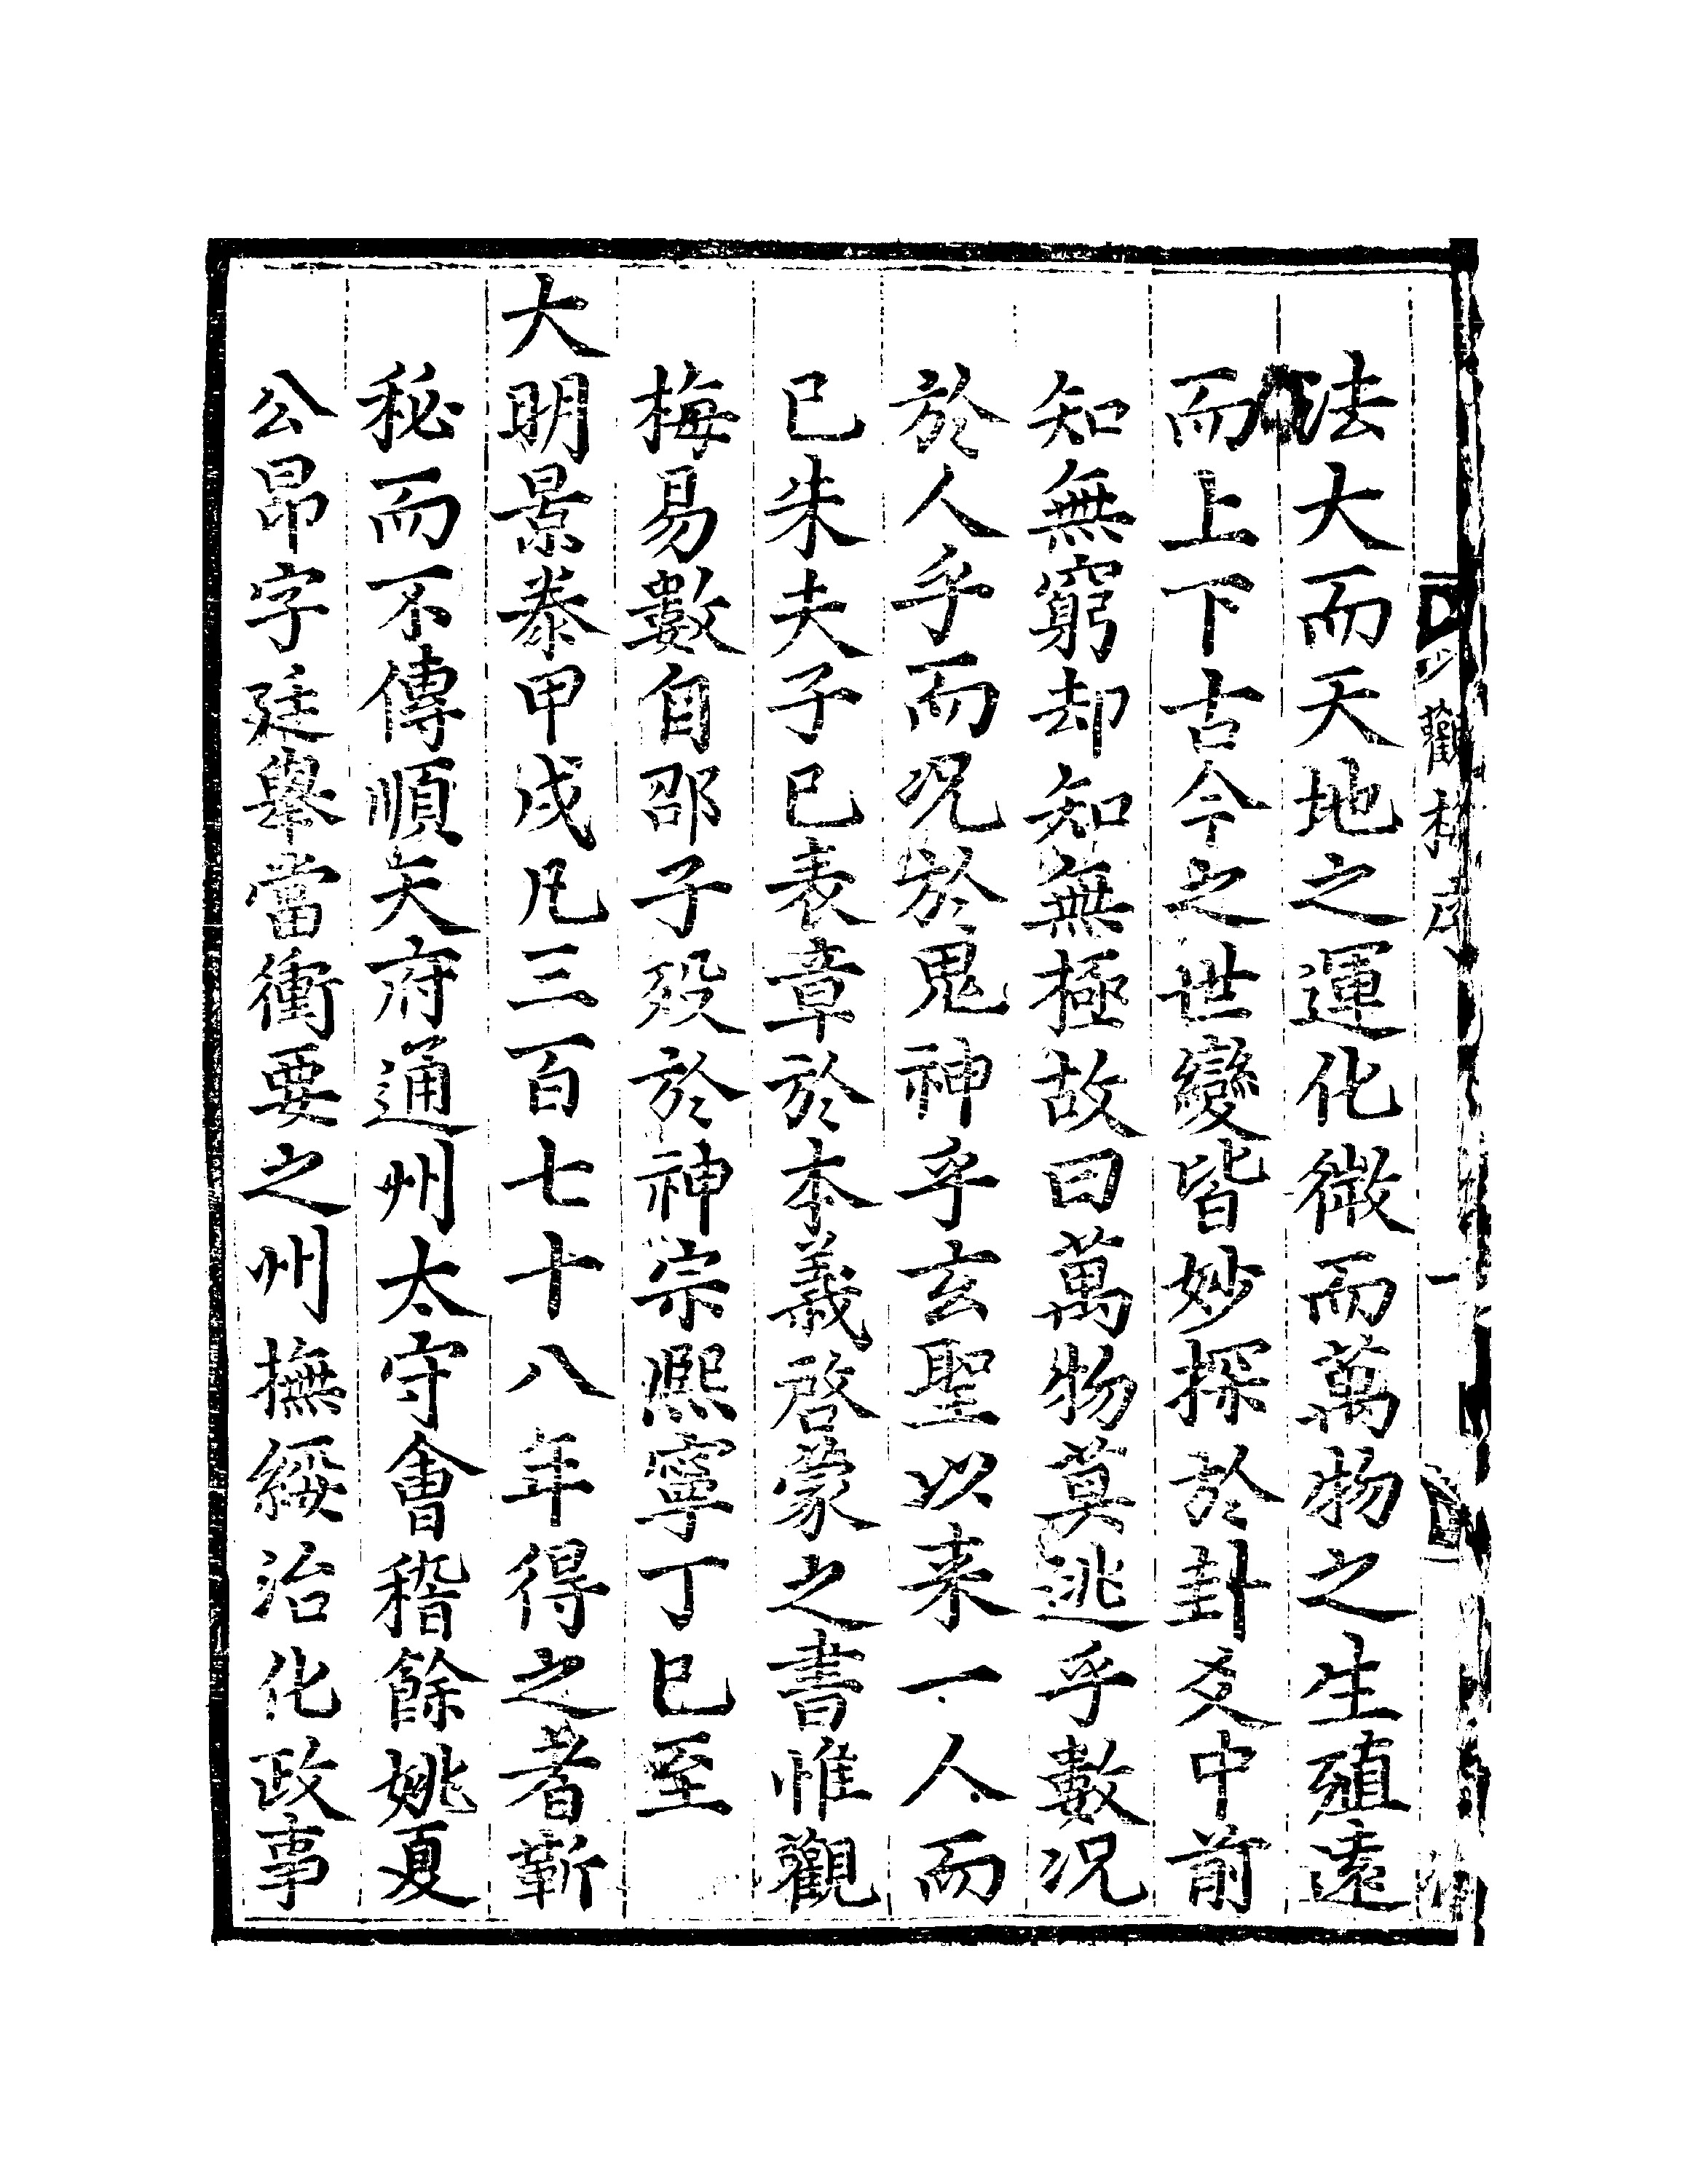 觀梅序
一
法大而天地之運化微而萬物之生殖遠
而上下古今之世變皆妙探於卦爻中前
知無窮却知無極故曰萬物莫逃乎數况
於人乎而况於鬼神乎玄聖以来一人而
已朱夫子已表章於本義啓蒙之書惟觀
梅易數自邵子殁於神宗熙寧丁巳至
大明景泰甲戌凡三百七十八年得之者靳
秘而不傳順天府通州太守會稽餘姚夏
公昂字廷舉當衝要之州撫綏治化政事